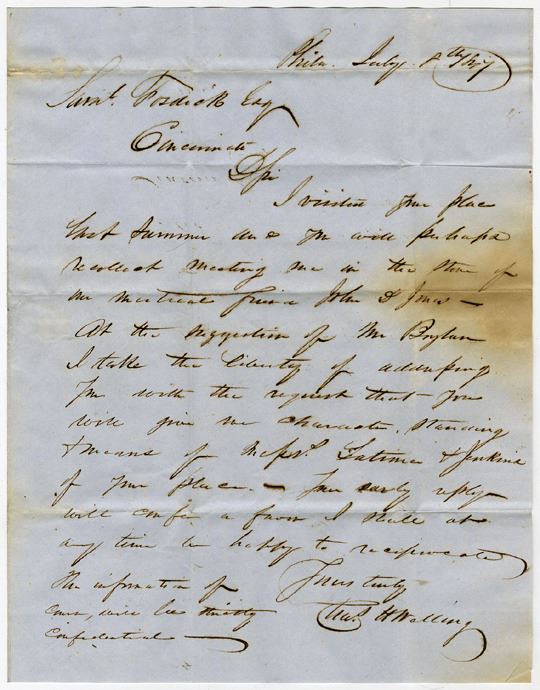 Phila. July 8th/47
Saml. Fosdick Esq
Cincinnati
D Sir
I visited your place
last Summer and you will perhaps
recollect meeting me in the store of
our mutual friend John D Jones —
At the suggestion of Mr Boylan
I take the liberty of addressing
you with the request that you
will give me character, standing
& means of Messrs. Latimer & Jenkins
of your place. — Your early reply
will confer a favor I shall at
any time be happy to reciprocate
Yours truly
H Welling
The information of
course, will be strictly
confidential —